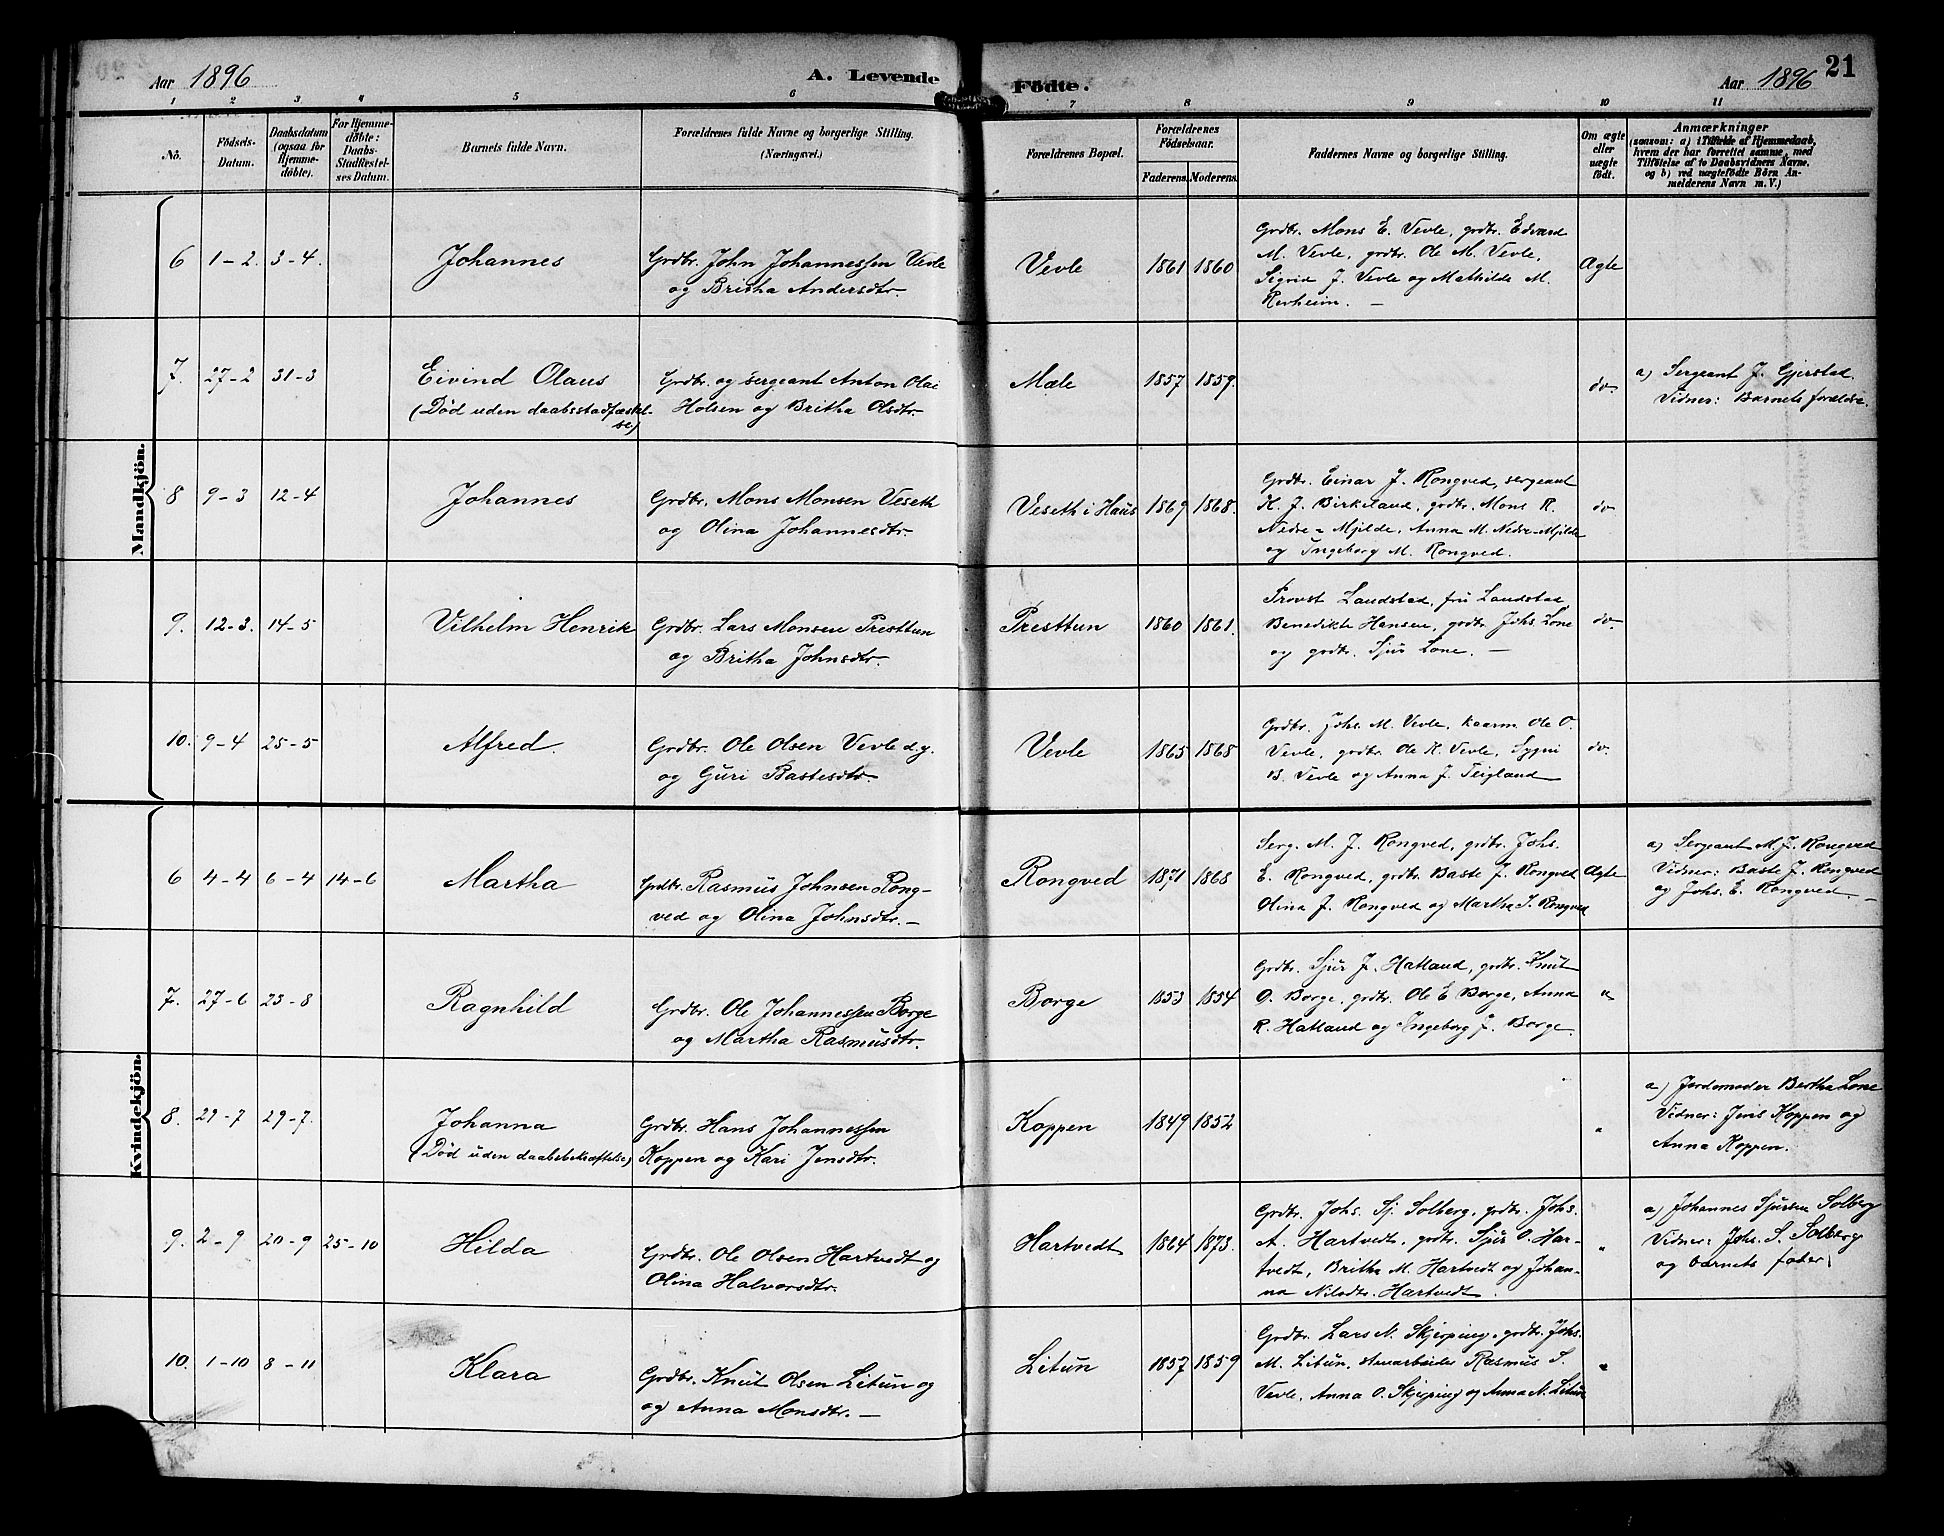 Aar 1896
A. Levende
Födte.
Aar 1896
21
1 2 3 4 5 6 7 8 9 10 11
No.
Födsels-
Datum.
Daabsdatum
(ogsaa for
Hjemme-
döbte).
For Hjemme-
döbte:
Daabs-
Stadfæstel-
ses Datum.
Barnets fulde Navn.
Forældrenes fulde Navne og borgerlige Stilling.
(Næringsvei.)
Forældrenes Bopæl.
Forældrenes
Födselsaar.
Faderens. Moderens.
Faddernes Navne og borgerlige Stilling.
Om ægte
eller
uægte
födt.
Anmærkninger
(saasom: a) i Tilfælde af Hjemmedaab,
hvem der har forrettet samme, med
Tilföielse af to Daabsvidners Navne,
og b) ved uægtefödte Börn An-
melderens Navn m. V.)
Mandkjön.
6 1-2. 3-4. Johannes
Grdbr. John Johannessen Vevle
og Britha Andersdtr.
Vevle 1861 1860
Grdbr. Mons E. Vevle, grdbr. Edvard
M. Vevle, grdbr. Ole M. Vevle,
Sigrid J. Vevle og Mathilde M.
Revheim. —
Ægte
7. 27-2 31-3 Eivind Olaus
(Død uden daabsstadfæstel-
se)
Grdbr. og sergeant Anton Olai
Holsen og Britha Olsdtr.
Mæle 1857 1859.
do
a) Sergeant J. Gjerstad.
Vidner: Barnets forældre.
8 9-3 12-4 Johannes
Grdbr. Mons Monsen Veseth
og Olina Johannesdtr.
Veseth i Haus 1869 1868.
Grdbr. Einar J. Rongved, sergeant
K. J. Birkeland, grdbr. Mons R.
Nedre-Mjelde, Anna M. Nedre-Mjelde
og Ingeborg M. Rongved.
do
9. 12-3. 14-5 Vilhelm Henrik
Grdbr. Lars Monsen Presttun
og Britha Johnsdtr.
Presttun 1860 1861.
Provst Landstad, fru Landstad,
Benedikte Hansen, grdbr. Johs. Lone
og grdbr. Sjur Lone. —
do.
10. 9-4 25-5 Alfred.
Grdbr. Ole Olsen Vevle d.y.
og Guri Bastesdtr.
Vevle 1865 1868
Grdbr. Johs. M. Vevle, kaarm. Ole O.
Vevle, grdbr. Ole K. Vevle, Sygni
B. Vevle og Anna J. Teigland
do.
Kvindekjön.
6 4-4 6-4 14-6 Martha
Grdbr. Rasmus Johnsen Rong-
ved og Olina Johnsdtr. —
Rongved 1871 1868
Serg. M. J. Rongved, grdbr. Johs.
E. Rongved, grdbr. Baste J. Rongved
Olina J. Rongved og Martha J. Rongved
Ægte
a) Sergeant M. J. Rongved
Vidner: Baste J. Rongved
og Johs. E. Rongved. —
7. 27-6 23-8 Ragnhild
Grdbr. Ole Johannessen Borge
og Martha Rasmusdtr.
Borge 1853 1854
Grdbr. Sjur J. Hatland, grdbr. Knut
O. Borge, grdbr. Ole E Borge, Anna
R. Hatland og Ingeborg J. Borge.
"
8. 29-7 29-7. Johanna
(Død uden daabsbekræftelse)
Grdbr. Hans Johannessen
Koppen og Kari Jensdtr.
Koppen 1849 1852
"
a) Jordemoder Bertha Lone
Vidner: Jens Koppen og
Anna Koppen.
9. 2-9 20-9 25-10 Hilda
Grdbr. Ole Olsen Hartvedt og
Olina Halvorsdtr.
Hartvedt 1864 1873.
Grdbr. Johs. Sj. Solberg, grdbr. Johs.
A. Hartvedt, grdbr. Sjur O. Har-
tvedt, Britha M. Hartvedt og Johan-
na Nilsdtr. Hartvedt.
"
a) Johannes Sjursen Solberg
Vidner: Johs. S. Solberg
og barnets fader.
10. 1-10 8-11 Klara
Grdbr. Knut Olsen Litun og
og Anna Monsdtr. —
Litun 1857 1859
Grdbr. Lars N. Skjerping, grdbr. Johs.
M. Litun, Rasmus S.
Vevle, Anna O. Skjerping og Anna N. Litun
"